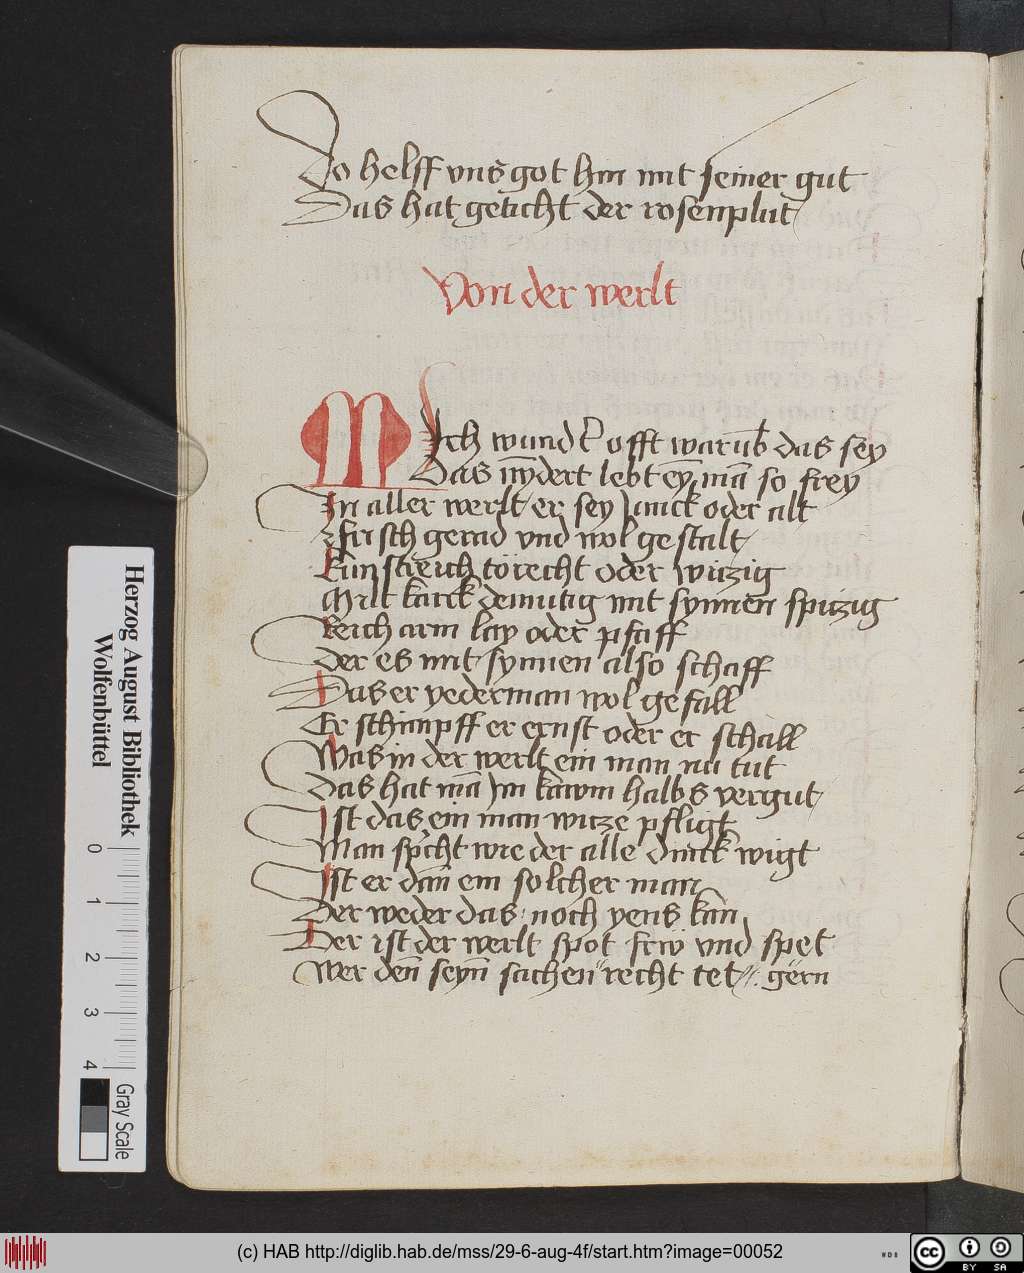 Do helff vns got hin mit seiner gut
Das hat geticht der rosenplut
Von der werlt
Mich wund̾ offt warūb das sey
Das nȳdert lebt eȳ mā so frey
In aller werlt er sey Junck oder alt
frisch gerad vnd wol gestalt
kunstreich törecht oder witzig
Milt karck demutig mit synnen spitzig
Reich arm lay oder pfaff
Der es mit synnen also schaff
Das er yederman wol gefall
Er schimpff er ernst oder er schall
Was in der werlt ein man nu tut
Das hat mā Im kawm halbs vergut
Ist das ein man witze pfligt
Man spͥcht wie der alle dinck wigt
Ist er dān ein solcher man
Der weder das noch yens kan
Der ist der werlt spot frw̄ vnd spet
Wer den̄ seyn̄ sachen recht tet gern
Herzog August Bibliothek
Wolfenbüttel
0 1 2 3 4
Gray Scale
(c) HAB http://diglib.hab.de/mss/29-6-aug-4f/start.htm?image=00052
WDB
cc BY SA